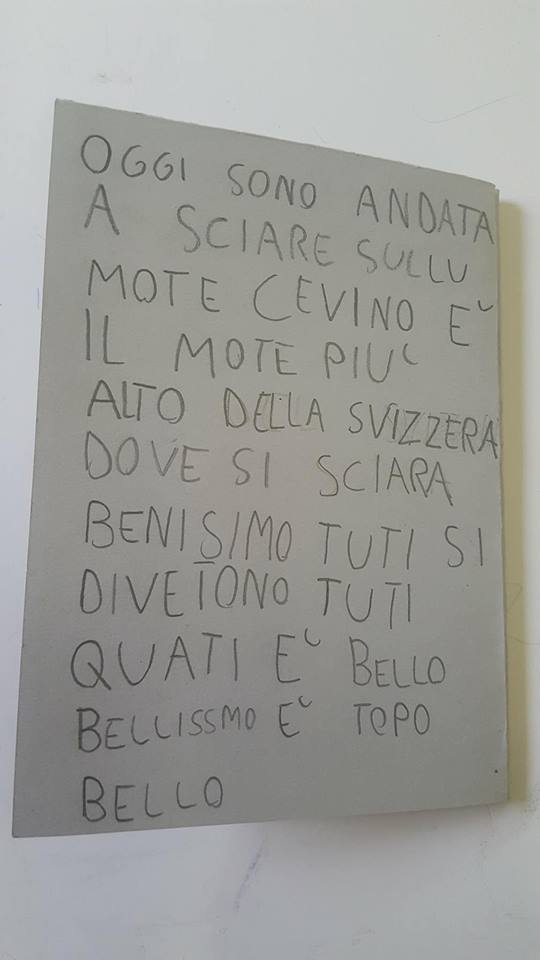 OGGI SONO ANDATA
A SCIARE SULLU
MOTE CEVINO E'
IL MOTE PIU'
ALTO DELLA SVIZZERA
DOVE SI SCIARA
BENISIMO TUTI SI
DIVETONO TUTI
QUATI E' BELLO
BELLISSMO E' TOPO
BELLO